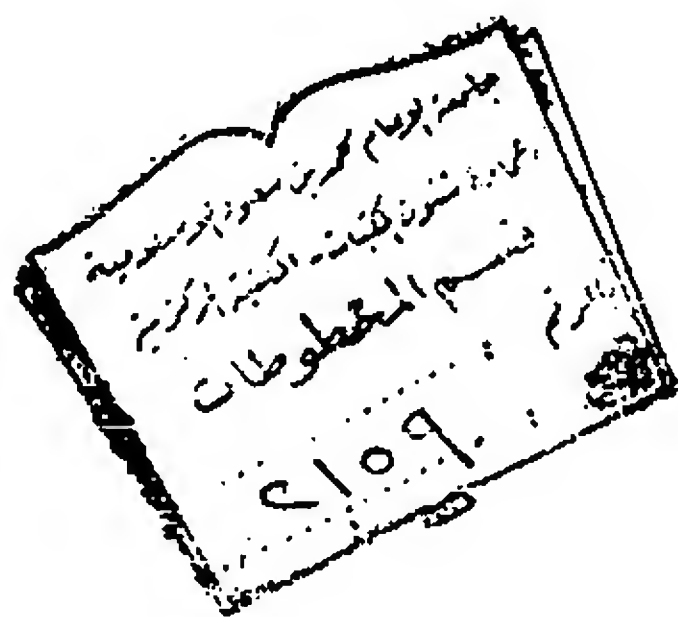 جامعة الإمام محمد بن سعود الإسلامية
عمادة شؤون المكتبات - المكتبة المركزية
قسم المخطوطات
الرقم :
٢١٥٩